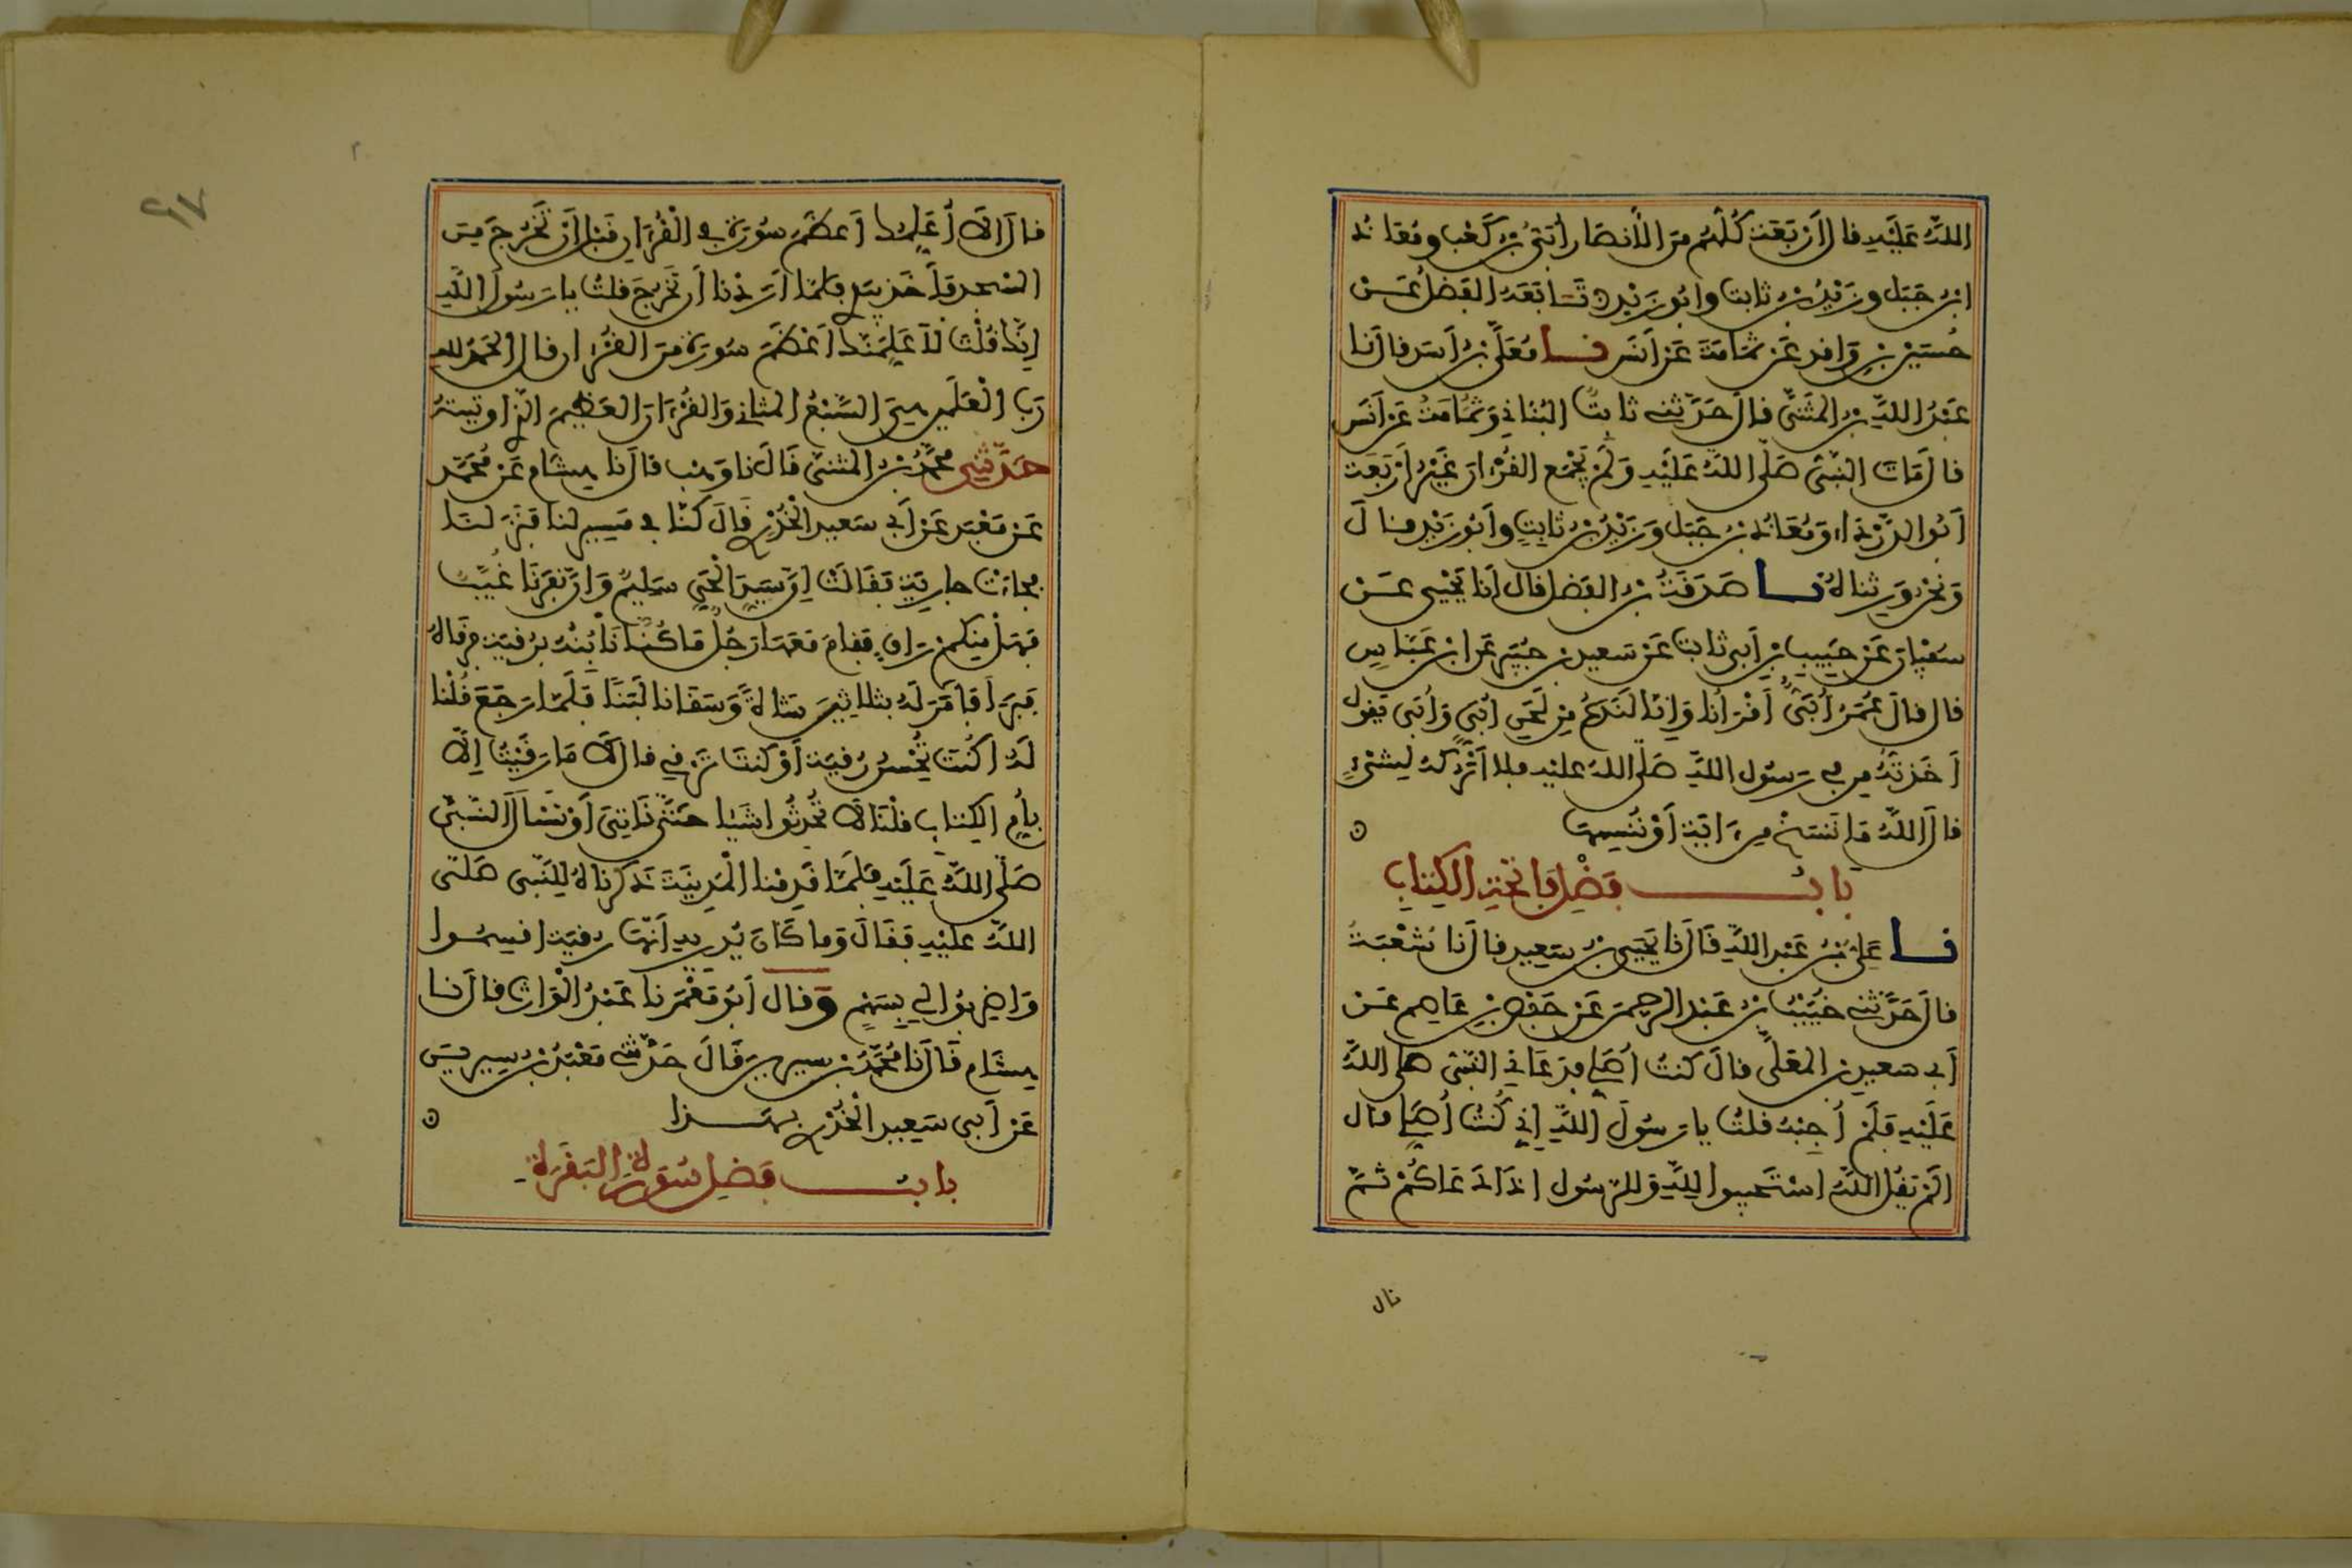 الله عليه قال أربعة كلهم من الأنصار أبي بن كعب ومعاذ
ابن جبل وزيد بن ثابت وأبو زيد تابعه الفضل عن
حسين بن واقد عن ثمامة عن أنس نا معلى بن أسد قال نا
عبد الله بن المثنى قال حدثني ثابت البناني وثمامة عن أنس
قال مات النبي صلى الله عليه ولم يجمع القرءان غير أربعة
أبو الدرداء ومعاذ بن جبل وزيد بن ثابت وأبو زيد قال
ونحن ورثناه نا صدقة بن الفضل قال أنا يحيى عن
سفيان عن حبيب بن أبي ثابت عن سعيد بن جبير عن ابن عباس
قال قال عمر أبي أقرأنا وإنا لندع من لحن أبي وأبي يقول
أخذته من في رسول الله صلى الله عليه فلا أتركه لشيء
قال الله ما ننسخ من ءاية أو ننسها
باب فضل فاتحة الكتاب
نا علي بن عبد الله قال نا يحيى بن سعيد قال نا شعبة
قال حدثني خبيب بن عبد الرحمن عن حفص بن عاصم عن
أبي سعيد بن المعلى قال كنت أصلي فدعاني النبي صلى الله
عليه فلم أجبه قلت يا رسول الله إني كنت أصلي قال
ألم يقل الله استجيبوا لله وللرسول إذا دعاكم ثم
قال
قال ألا أعلمك أعظم سورة في القرءان قبل أن تخرج من
المسجد فأخذ بيدي فلما أردنا أن نخرج قلت يا رسول الله
إنك قلت لأعلمنك أعظم سورة من القرءان قال الحمد لله
رب العلمين هي السبع المثاني والقرءان العظيم الذي أوتيته
حدثني محمد بن المثنى قال نا وهب قال نا هشام عن محمد
عن معبد عن أبي سعيد الخدري قال كنا في مسير لنا فنزلنا
فجاءت جارية فقالت إن سيد الحي سليم وإن نفرنا غيب
فهل منكم راق فقام معها رجل ما كنا نأبنه برقية فرقاه
فبرأ فأمر له بثلاثين شاة وسقانا لبنا فلما رجع قلنا
له أكنت تحسن رقية أو كنت ترقي قال لا ما رقيت إلا
بأم الكتاب قلنا لا تحدثوا شيئا حتى نأتي أو نسأل النبي
صلى الله عليه فلما قدمنا المدينة ذكرناه للنبي صلى
الله عليه فقال وما كان يدريه أنها رقية اقسموا
واضربوا لي بسهم وقال أبو معمر نا عبد الوارث قال نا
هشام قال نا محمد بن سيرين قال حدثني معبد بن سيرين
عن أبي سعيد الخدري بهذا
باب فضل سورة البقرة